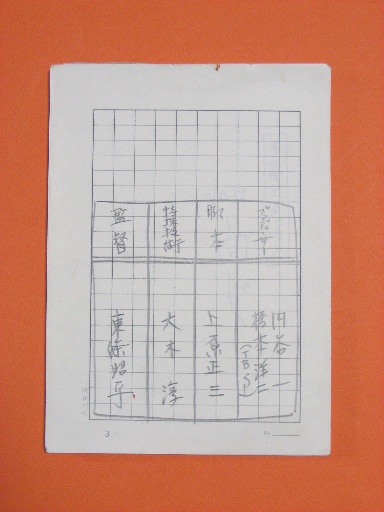 円谷一
橋本洋二
(TBS)
脚本
上原正三
特殊技術
大木淳
監督
東條昭平
3
No.